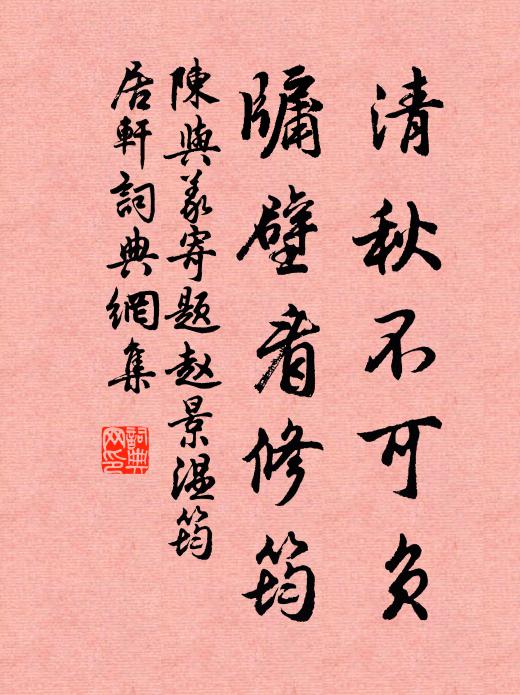 清秋不可负
牖壁看修筠
陳與義寄题赵景温筠
居軒詞典網集
詞典网印